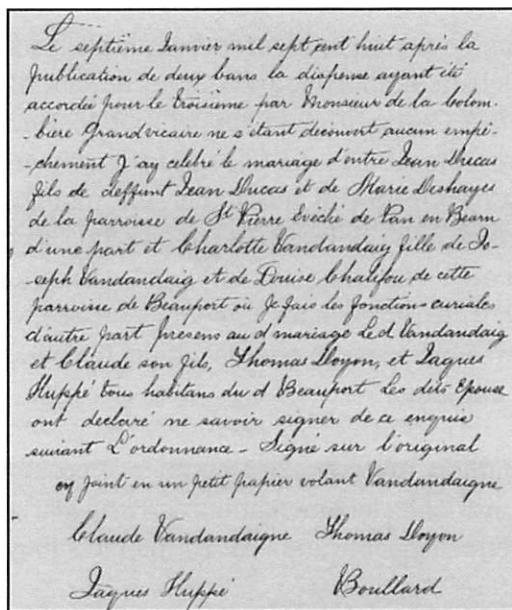 Le septième Janvier mil sept cent huit après la
publication de deux bans la dispense ayant été
accordée pour le troisième par Monsieur de la Colom-
-bière Grand vicaire ne s'étant découvert aucun empê-
-chement J'ay célébré le mariage d'entre Jean Ducas
fils de deffunt Jean Ducas et de Marie Deshayes
de la parroisse de St Pierre Evêché de Pau en Bearn
d'une part et Charlotte Vandandaig fille de Jo-
-seph Vandandaig et de Louise Chalifou de cette
parroisse de Beauport où Je fais les fonctions curiales
d'autre part presens au d mariage Le d Vandandaig
et Claude son fils, Thomas Doyon, et Jaques
Huppé tous habitans du d Beauport Les dits Epouse
ont declaré ne savoir signer de ce enquis
suivant L'ordonnance - Signé sur l'original
cy joint en un petit papier volant Vandandaigne
Claude Vandandaigne Thomas Doyon
Jaques Huppé Boullard